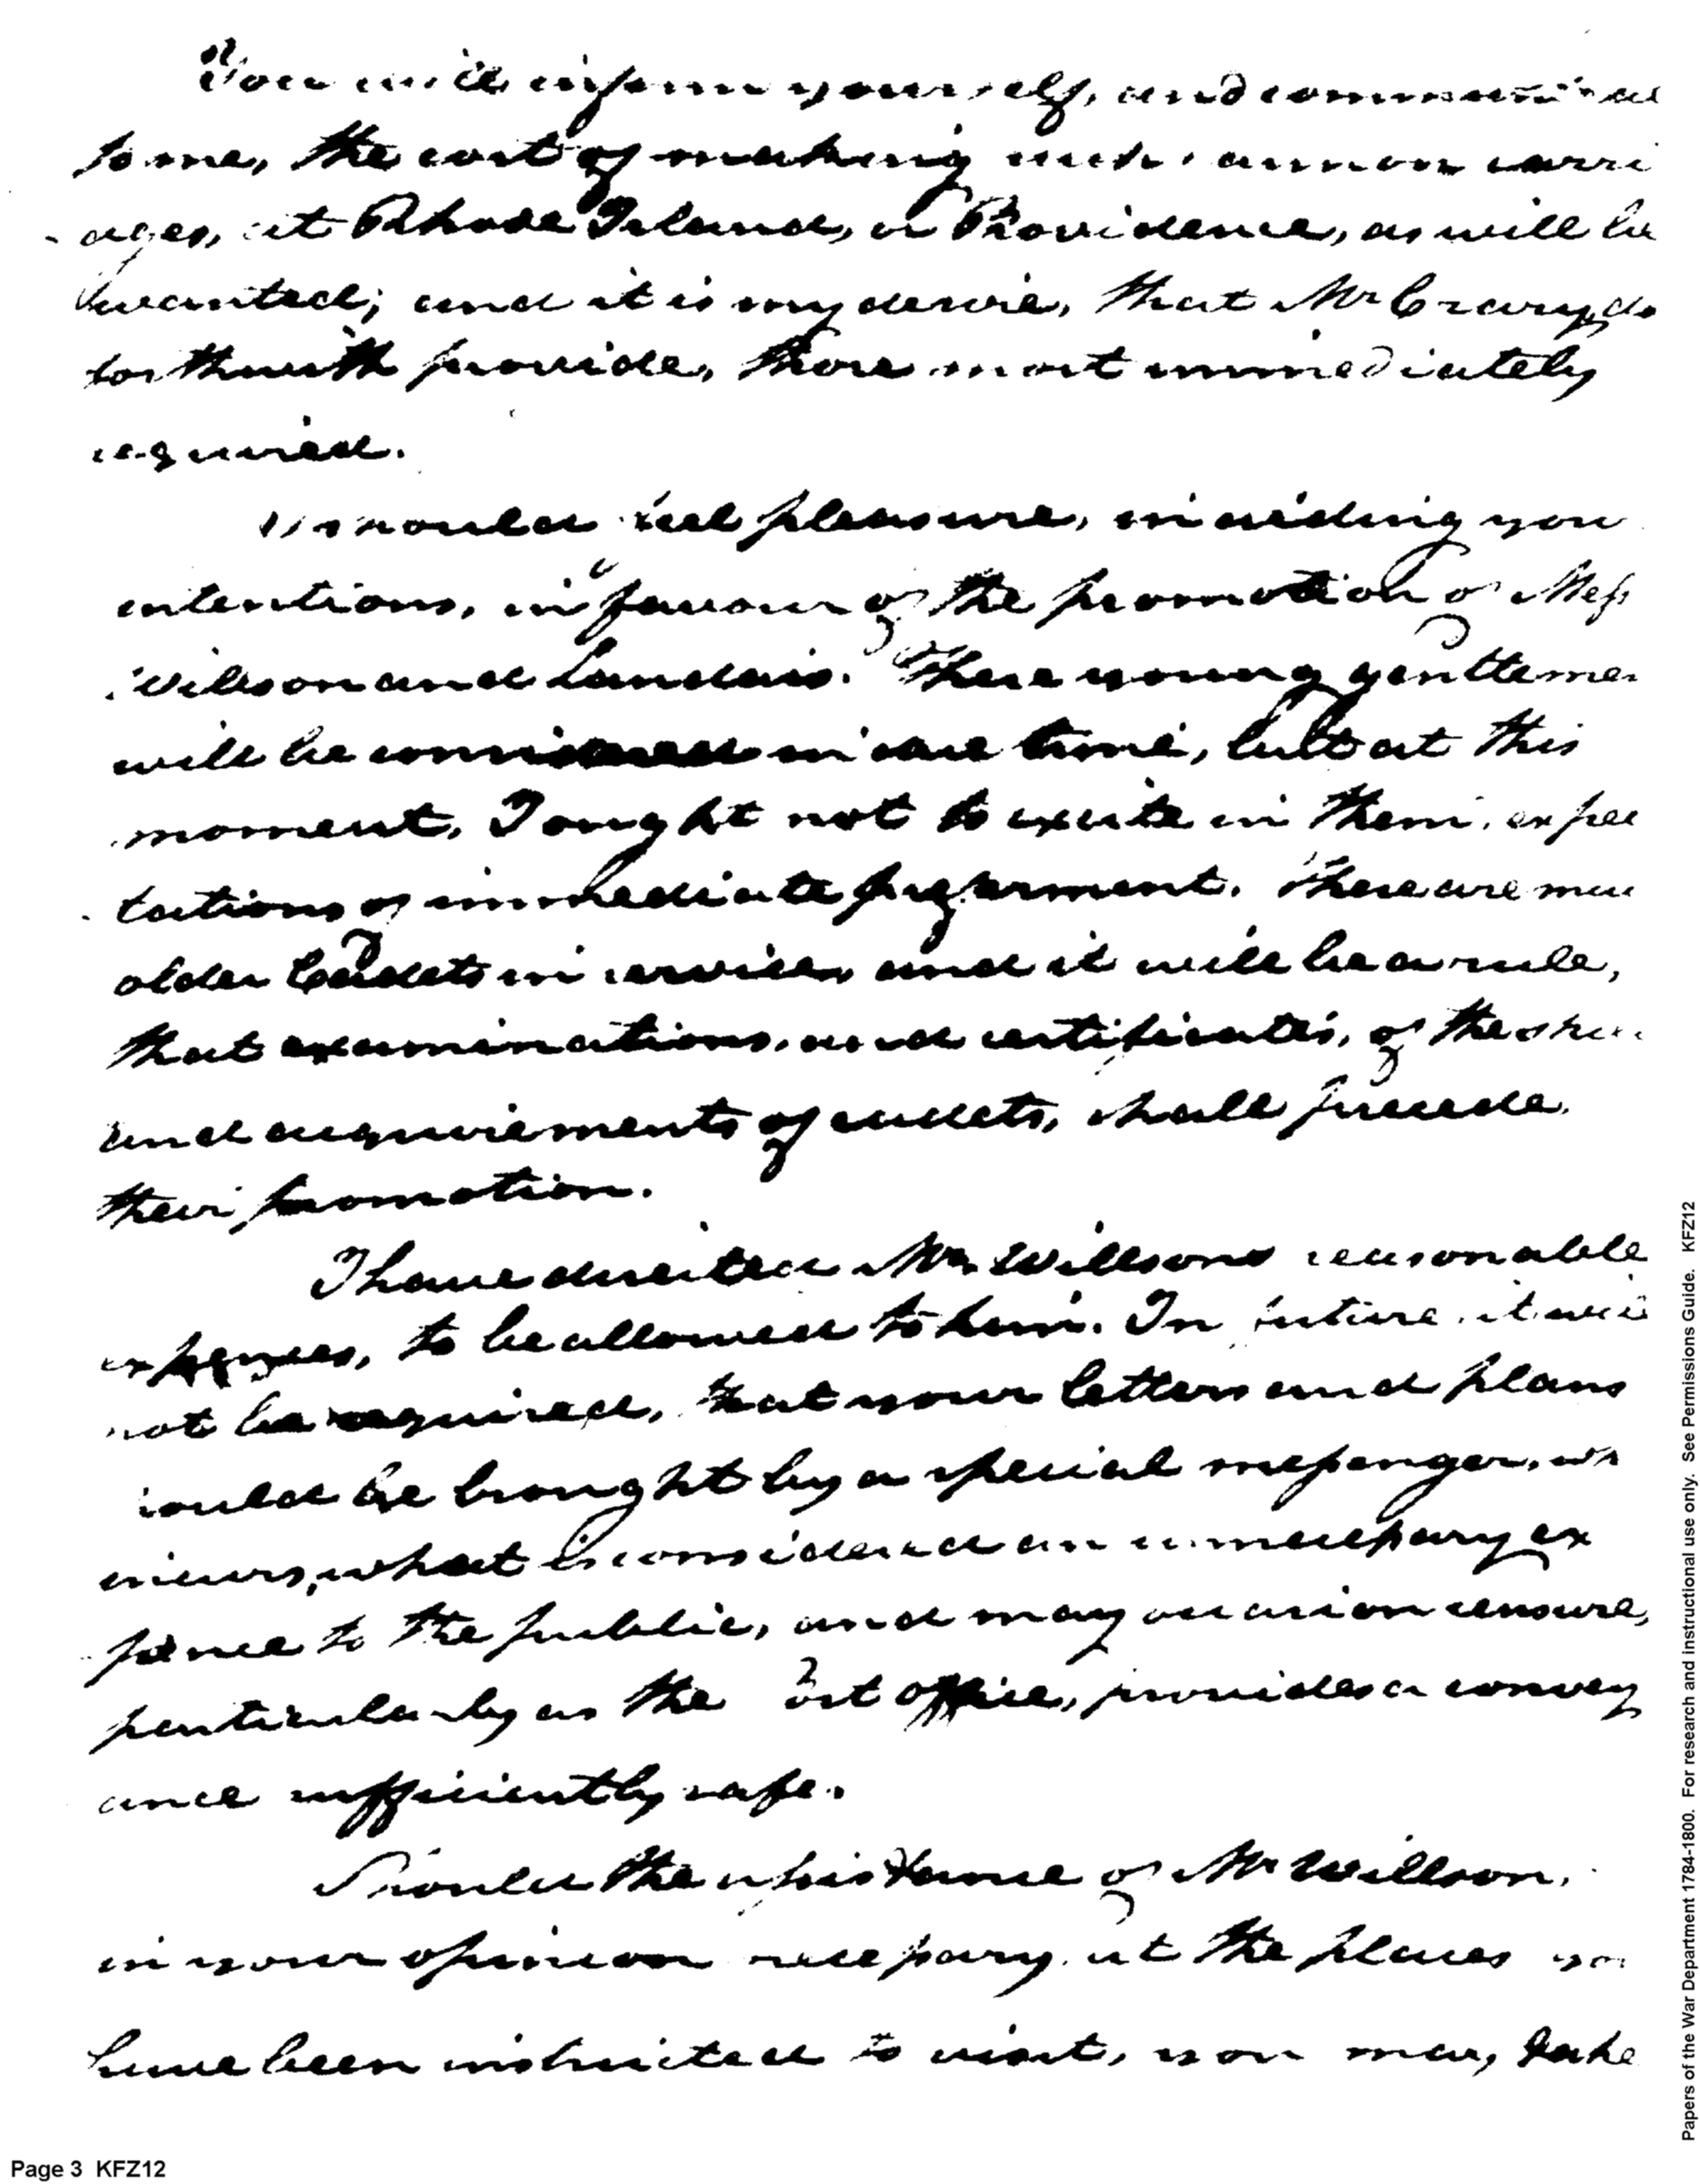 You will inform yourself, and communicate
to me, the cost of making such cannon carri
- ages, at Rhode Island, or Providence, as will be
wanted; and it is my desire, that Mr Crary, do
forthwith provide, those most immediately
required.
I should feel pleasure, in aiding your
intentions, in favour of the promotion of Mess
Willson and Landais. These young gentlemen
will be considered in due time, but at this
moment, I ought not to excite in them, expec
- tations of immediate preferment. There are many
older Cadets in service, and it will be a rule,
that examinations, and certificates, of the
and acquirements of cadets, shall precede
their promotion.
I have directed Mr. Willsons reasonable
expenses, to be allowed to him. In future, it will
not be required, that your letters and plans
should be brought by a special messenger, as
incurs, what is considered an unnecessary ex
- pence to the public, and may occasion censure,
particularly as the Post office, provides a convey
ance sufficiently safe.
Should the assistance of Mr Willson,
in your opinion necessary, at the places you
have been instructed to visit, you may, take
Page 3 KFZ12
Papers of the War Department 1784-1800. For research and instructional use only. See Permissions Guide. KFZ12